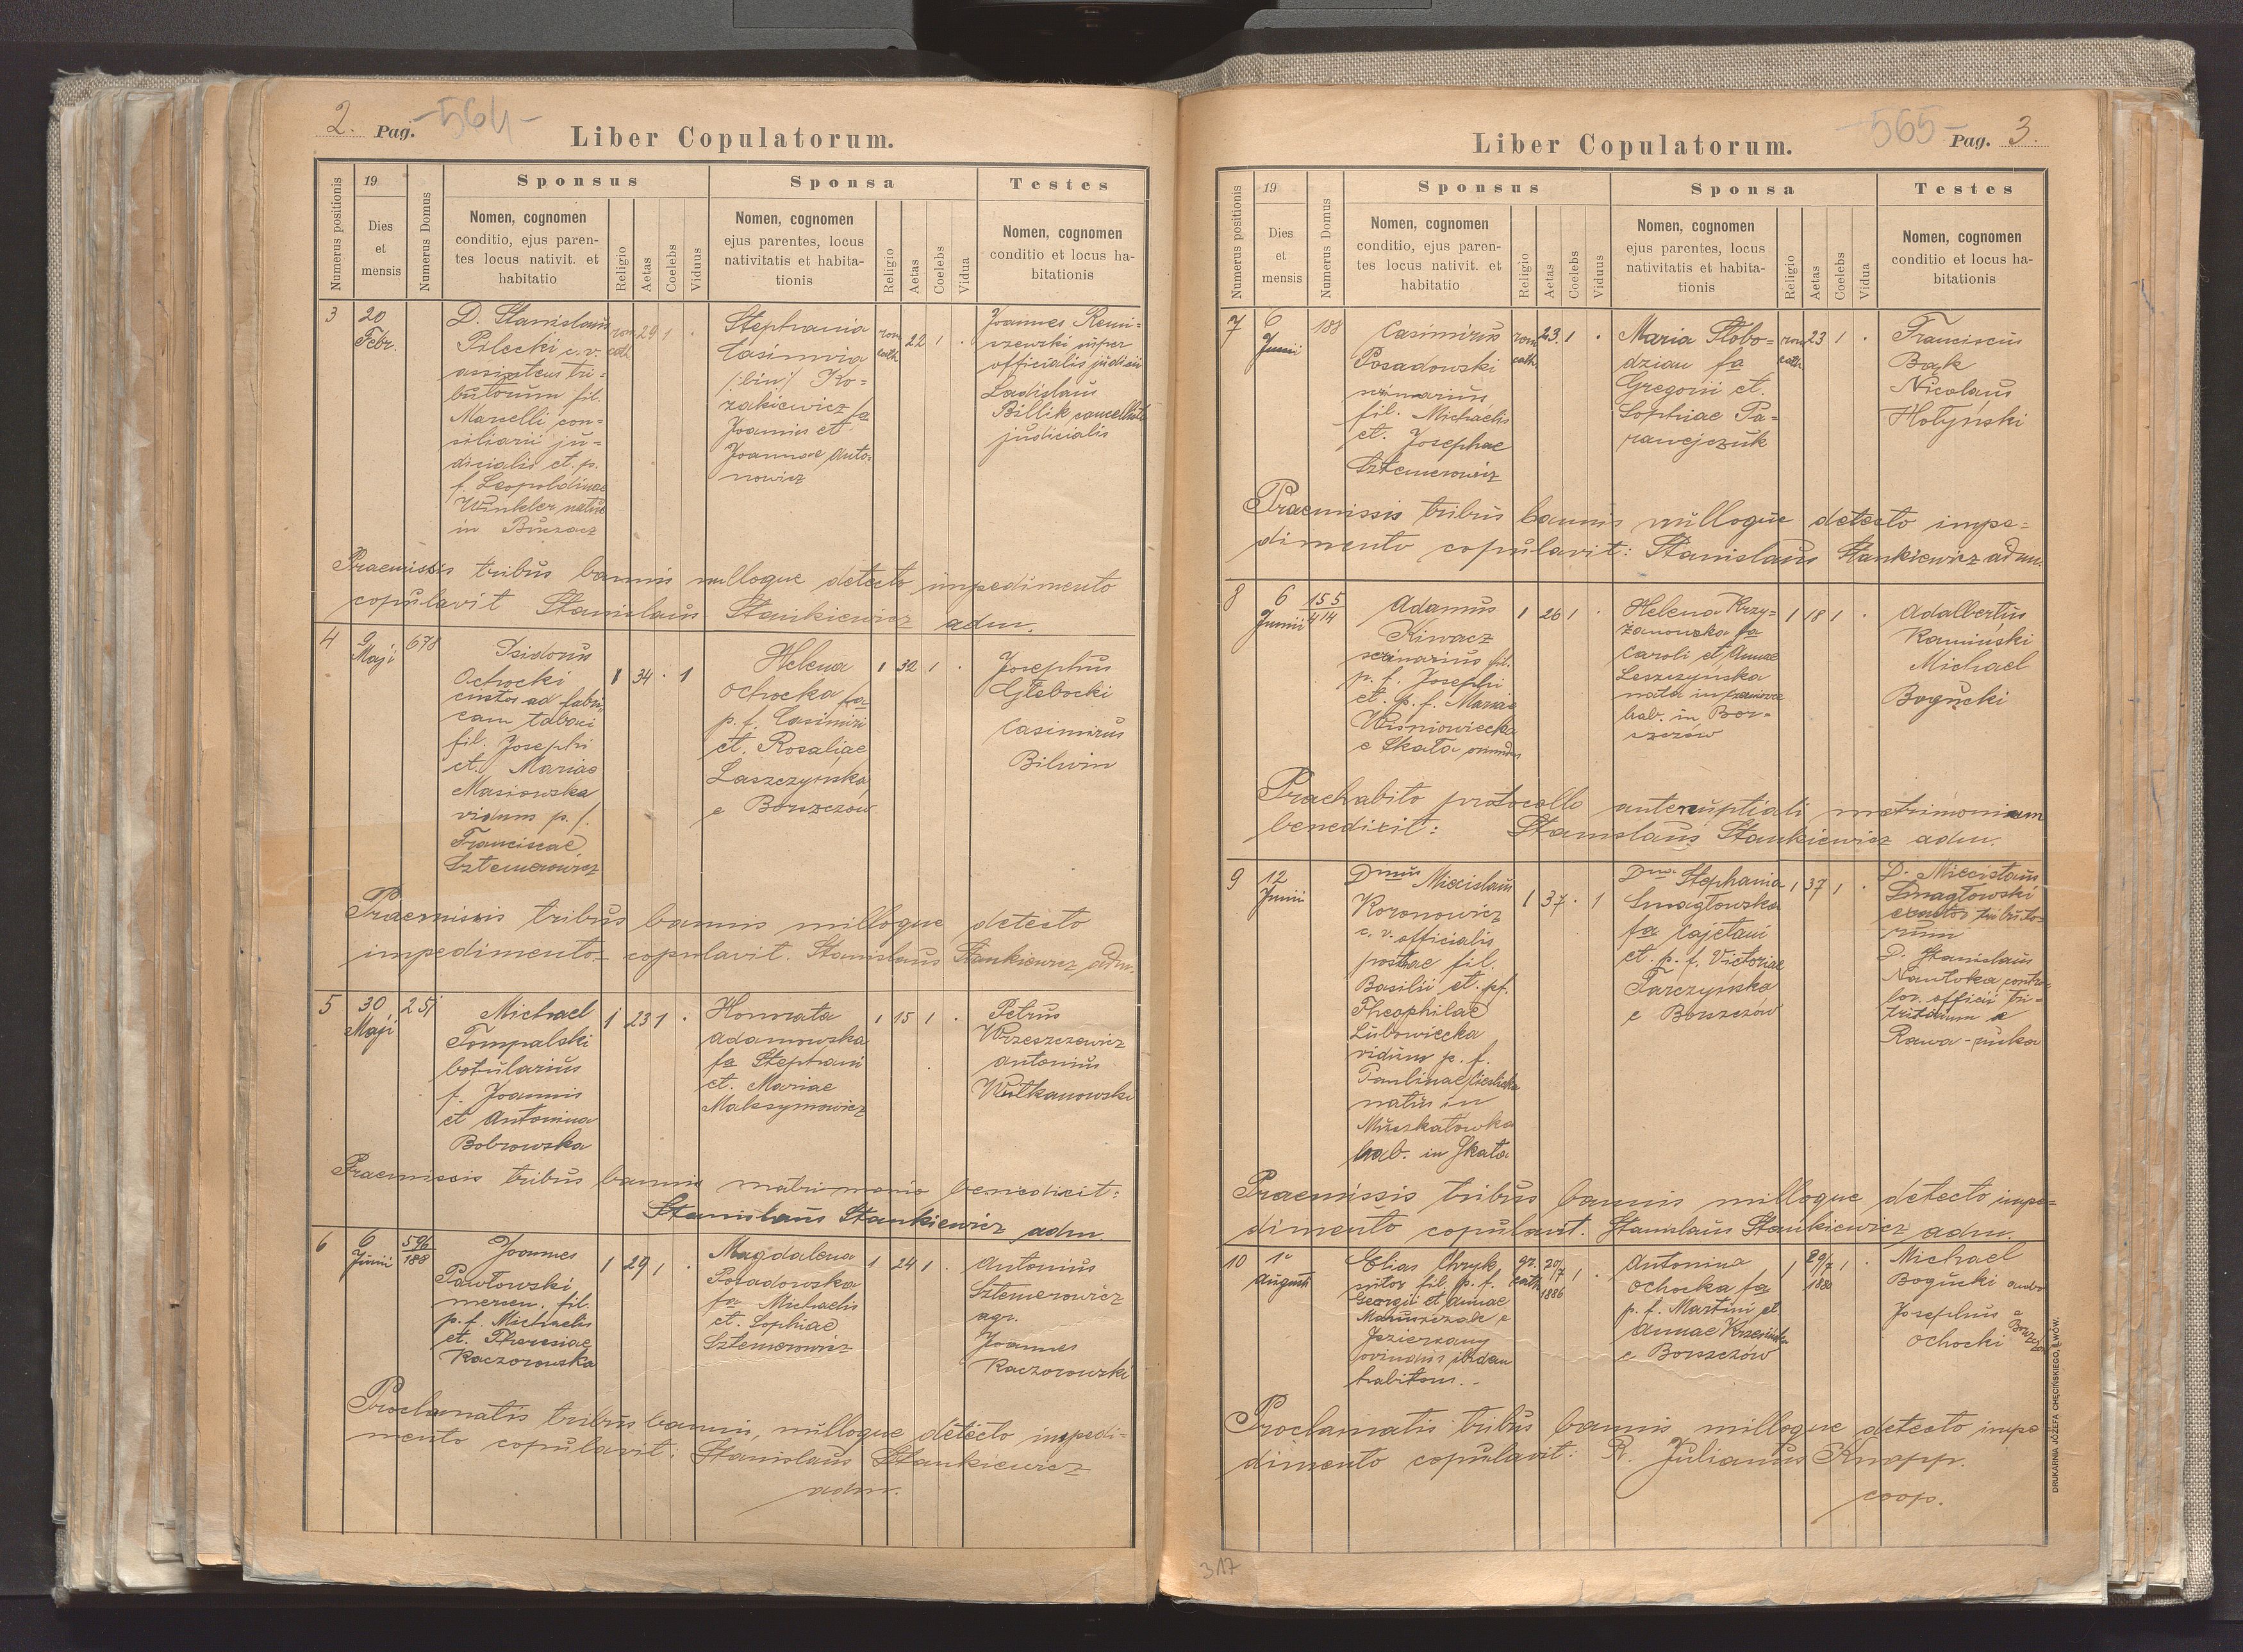 2. Pag. -564-
Liber Copulatorum.
Numerus positionis
19
Dies
et
mensis
Numerus Domus
Sponsus
Nomen, cognomen
conditio, ejus paren-
tes locus nativit. et
habitatio
Religio
Aetas
Coelebs
Viduus
Sponsa
Nomen, cognomen
ejus parentes, locus
nativitatis et habita-
tionis
Religio
Aetas
Coelebs
Vidua
Testes
Nomen, cognomen
conditio et locus ha-
bitationis
3
20
Febr.
D. Stanislaus
Pilecki c. v.
assistens tri-
butorum fil.
Marcelli con-
siliarii ju-
dicialis et p.
f. Leopoldinae
Winkler natus
in Buczacz
rom
cath
29 1 .
Stephania
Casimira
/:bin:/ Ko-
zakiewicz fa
Joannis et
Joannae Anto-
nowicz
rom
cath
22 1 .
Joannes Remi-
szewski super
officialis judicii
Ladislaus
Billik
judicialis
Praemissis tribus bannis nulloque detecto impedimento
copulavit Stanislaus Stankiewicz adm.
4
9
Maji
678
Isidorus
Ochocki
custos ad fabri-
cam tabaci
fil. Josephi
et Mariae
Masiowska
viduus p. f.
Franciscae
Sztemerowicz
1 34 . 1
Helena
Ochocka fa
p. f. Casimiri
et. Rosaliae
Laszczyńska
e Borszczów
1 32 1 .
Josephus
Głębocki
Casimirus
Bilwin
Praemissis tribus bannis nulloque detecto
impedimento copulavit. Stanislaus Stankiewicz adm.
5
30
Maji
251
Michael
Tompalski
botularius
f. Joannis
et Antonina
Bobrowska
1 23 1 .
Honorata
Adamowska
fa Stephani
et. Mariae
Maksymowicz
1 15 1 .
Petrus
Wrzeszczewicz
Antonius
Wilkanowski
Praemissis tribus bannis matrimonio benedixit:
Stanislaus Stankiewicz adm
6
6
Junii
596
188
Joannes
Pawłowski
mercen. fil.
p. f. Michaelis
et. Theresiae
Kaczorowska
1 29 1 .
Magdalena
Posadowska
fa Michaelis
et. Sophiae
Sztemerowicz
1 24 1 .
Antonius
Sztemerowicz
agr.
Joannes
Kaczorowski
Proclamatis tribus bannis, nulloque detecto impedi-
mento copulavit: Stanislaus Stankiewicz
adm.
-565- Pag. 3.
Liber Copulatorum.
Numerus positionis
19
Dies
et
mensis
Numerus Domus
Sponsus
Nomen, cognomen
conditio, ejus paren-
tes locus nativit. et
habitatio
Religio
Aetas
Coelebs
Viduus
Sponsa
Nomen, cognomen
ejus parentes, locus
nativitatis et habita-
tionis
Religio
Aetas
Coelebs
Vidua
Testes
Nomen, cognomen
conditio et locus ha-
bitationis
7
6
Junii
188
Casimirus
Posadowski
fil. Michaelis
et. Josephae
Sztemerowicz
rom
cath.
23. 1 .
Maria Słobo-
dzian fa
Gregorii et
Sophiae Pa-
rawejczuk
rom
cath
23 1 .
Franciscus
Bąk
Nicolaus
Hołyński
Praemissis tribus bannis nulloque detecto impe-
dimento copulavit: Stanislaus Stankiewicz adm.
8
6
Junii
155
414
Adamus
Kiwacz
fil.
p. f. Josephi
et. p. f. Mariae
Wiśniowiecka
e Skała oriundus
1 26 1 .
Helena Krzy-
żanowska fa
Caroli et Annae
Leszczyńska
nata in
hab. in Bor-
szczów
1 18 1 .
Adalbertus
Kamiński
Michael
Bogucki
Praehabito protocollo antenuptiali matrimonium
benedixit: Stanislaus Stankiewicz adm.
9
12
Junii
Dnus Miecislaus
Koronowicz
c. v. officialis
postae fil.
Basilii et. pf.
Theophilae
Lubowiecka
viduus p. f.
Paulinae
natus in
Muszkatowka
hab. in Skała
1 37 . 1
Dna Stephania
Smagłowska
fa Cajetani
et. p. f. Victoriae
Tarczyńska
e Borszczów
1 37 1 .
D. Miecislaus
Smagłowski
exactor tributo-
rum
D. Stanislaus
Nawłoka contro-
lor. officii tri-
Rawa-ruska
Praemissis tribus bannis nulloque detecto impe-
dimento copulavit. Stanislaus Stankiewicz adm.
10
1º
Augusti
Elias Chryk
sutor fil. p. f.
Georgii et Annae
Maruszczak e
Jezierzany
oriundus ibidem
habitans.-
gr.
cath
20/7
1886
1 .
Antonina
Ochocka fa
p. f. Martini et
Annae
e Borszczów
1
29/7
1880
1 .
Michael
Bogucki ambo
Josephus a
Ochocki
Proclamatis tribus bannis nulloque detecto impe
dimento copulavit: R. Julianus Knapp.
coop.
DRUKARNIA JÓZEFA CHĘCIŃSKIEGO, LWÓW.
317